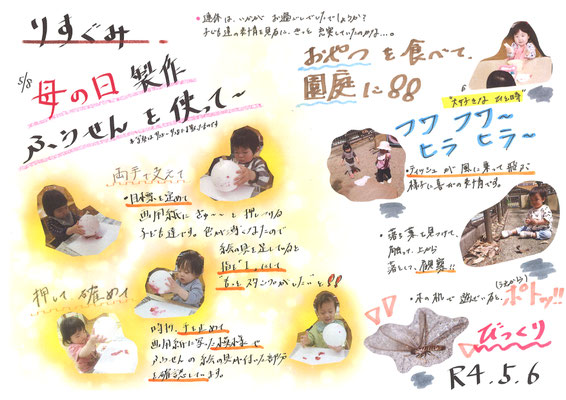 りすぐみ
・連休は、いかが お過ごしでしたでしょうか?
子ども達の表情を見るに、きっと 充実していたのかな…。
5/8
母の日 製作
ふうせん を 使って〜
両手で支えて
・目標を定めて
画用紙に ぎゅ〜 と 押し切る
子ども達です。
絵の具を足して
指を"1"にして
"もっとスタンプがしたい"と!!
押して 確めて
時折、手を止めて
画用紙に写った模様や
ふうせんの 絵の具が付いた部分
を確認しています。
おやつ を 食べて、
園庭に!!
"大好きな ひと時"
フワ フワ〜
ヒラ ヒラ〜
・ティッシュ が 風に乗って 飛ぶ
様子に 喜びの表情です。
・落ち葉を見つけて、
触って、上から
落として、観察!!
・木の机で 遊んでいると、ポトッ!!
(うえから)
びっくり
R4.5.6